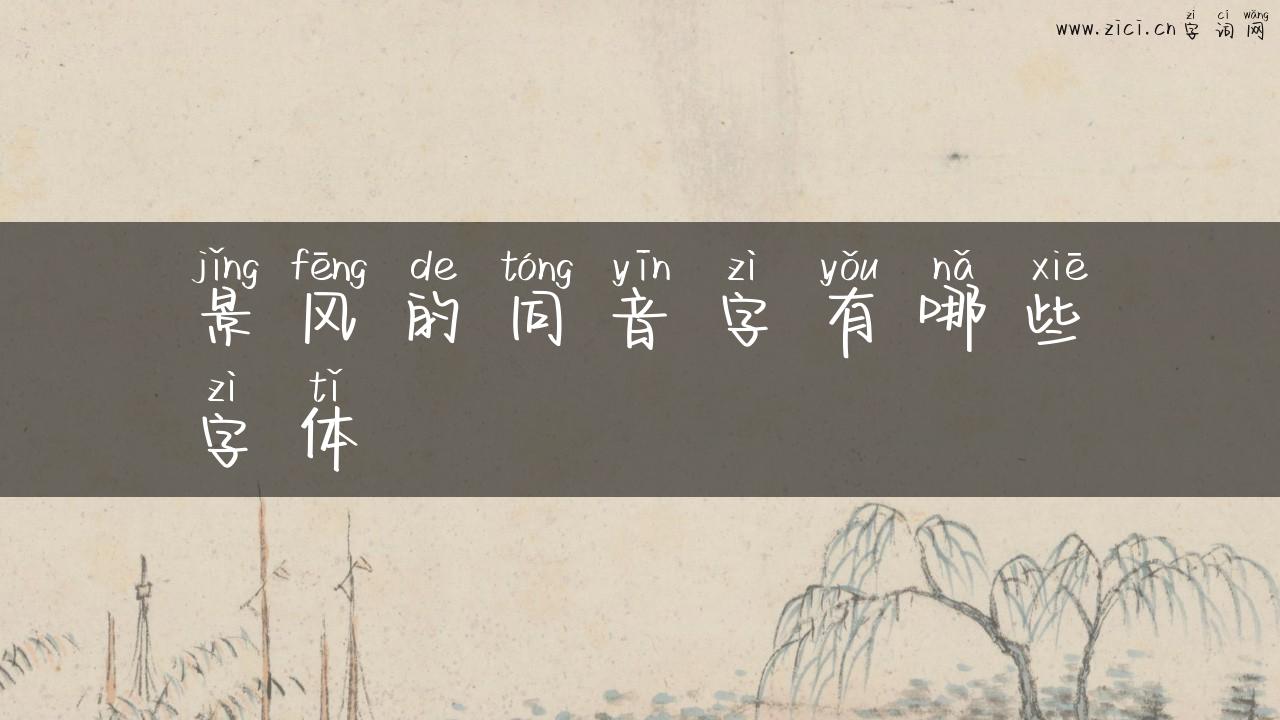 www.zici.cn 字词网
zì cí wǎng
jǐng fēng de tóng yīn zì yǒu nǎ xiē
景风的同音字有哪些
zì tǐ
字体